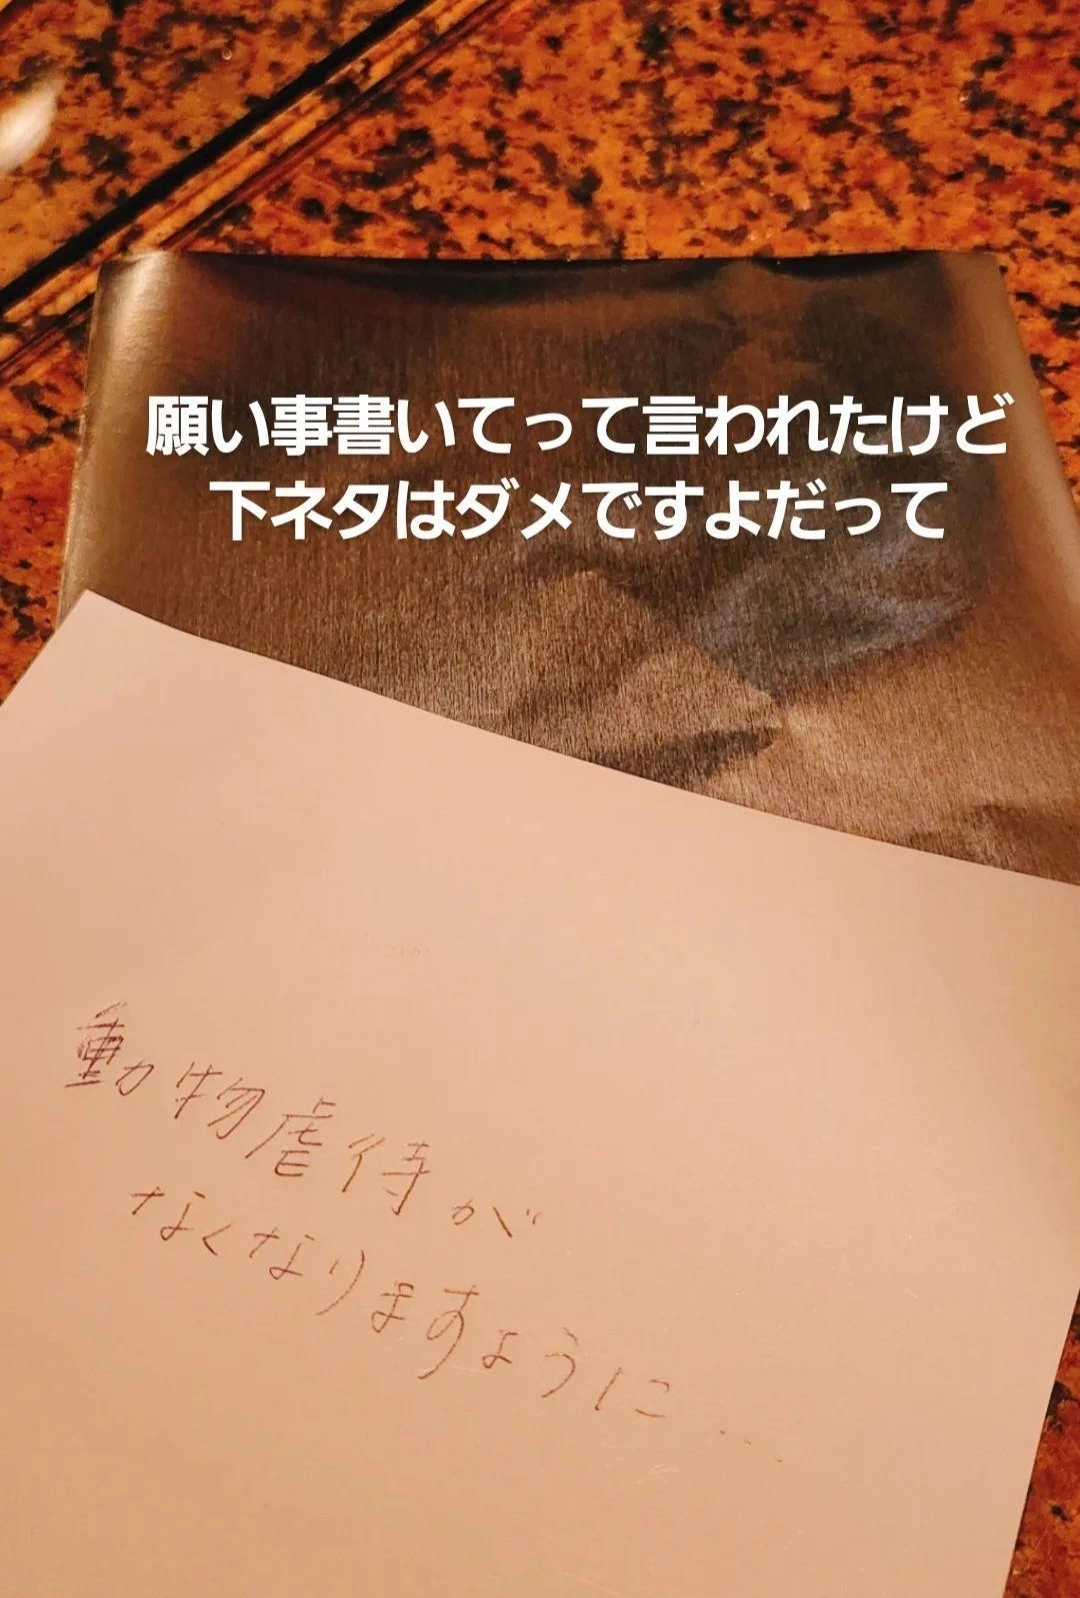 願い事書いてって言われたけど
下ネタはダメですよだって
動物虐待が
なくなりますように...